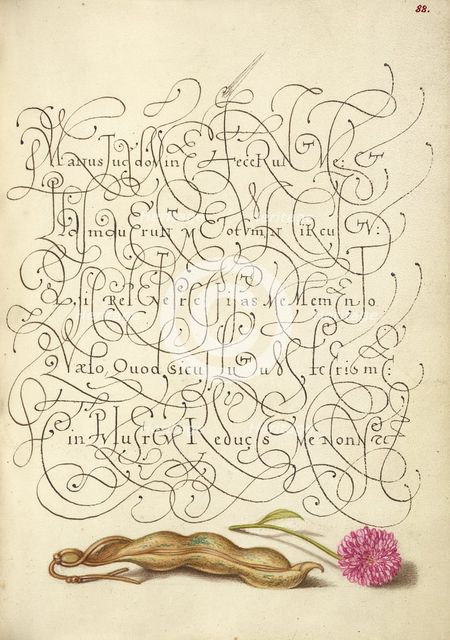 88.
Manus Tuę domine FecerunT Me: ET
PlasmavERunT ME toTvm iN circuiTV:
ET sic REpENTe PrecipiTas Me MEmENTo
Quæso, Quod sicuT luTuM FEceris me: ET
in PulvErEM REducEs Me